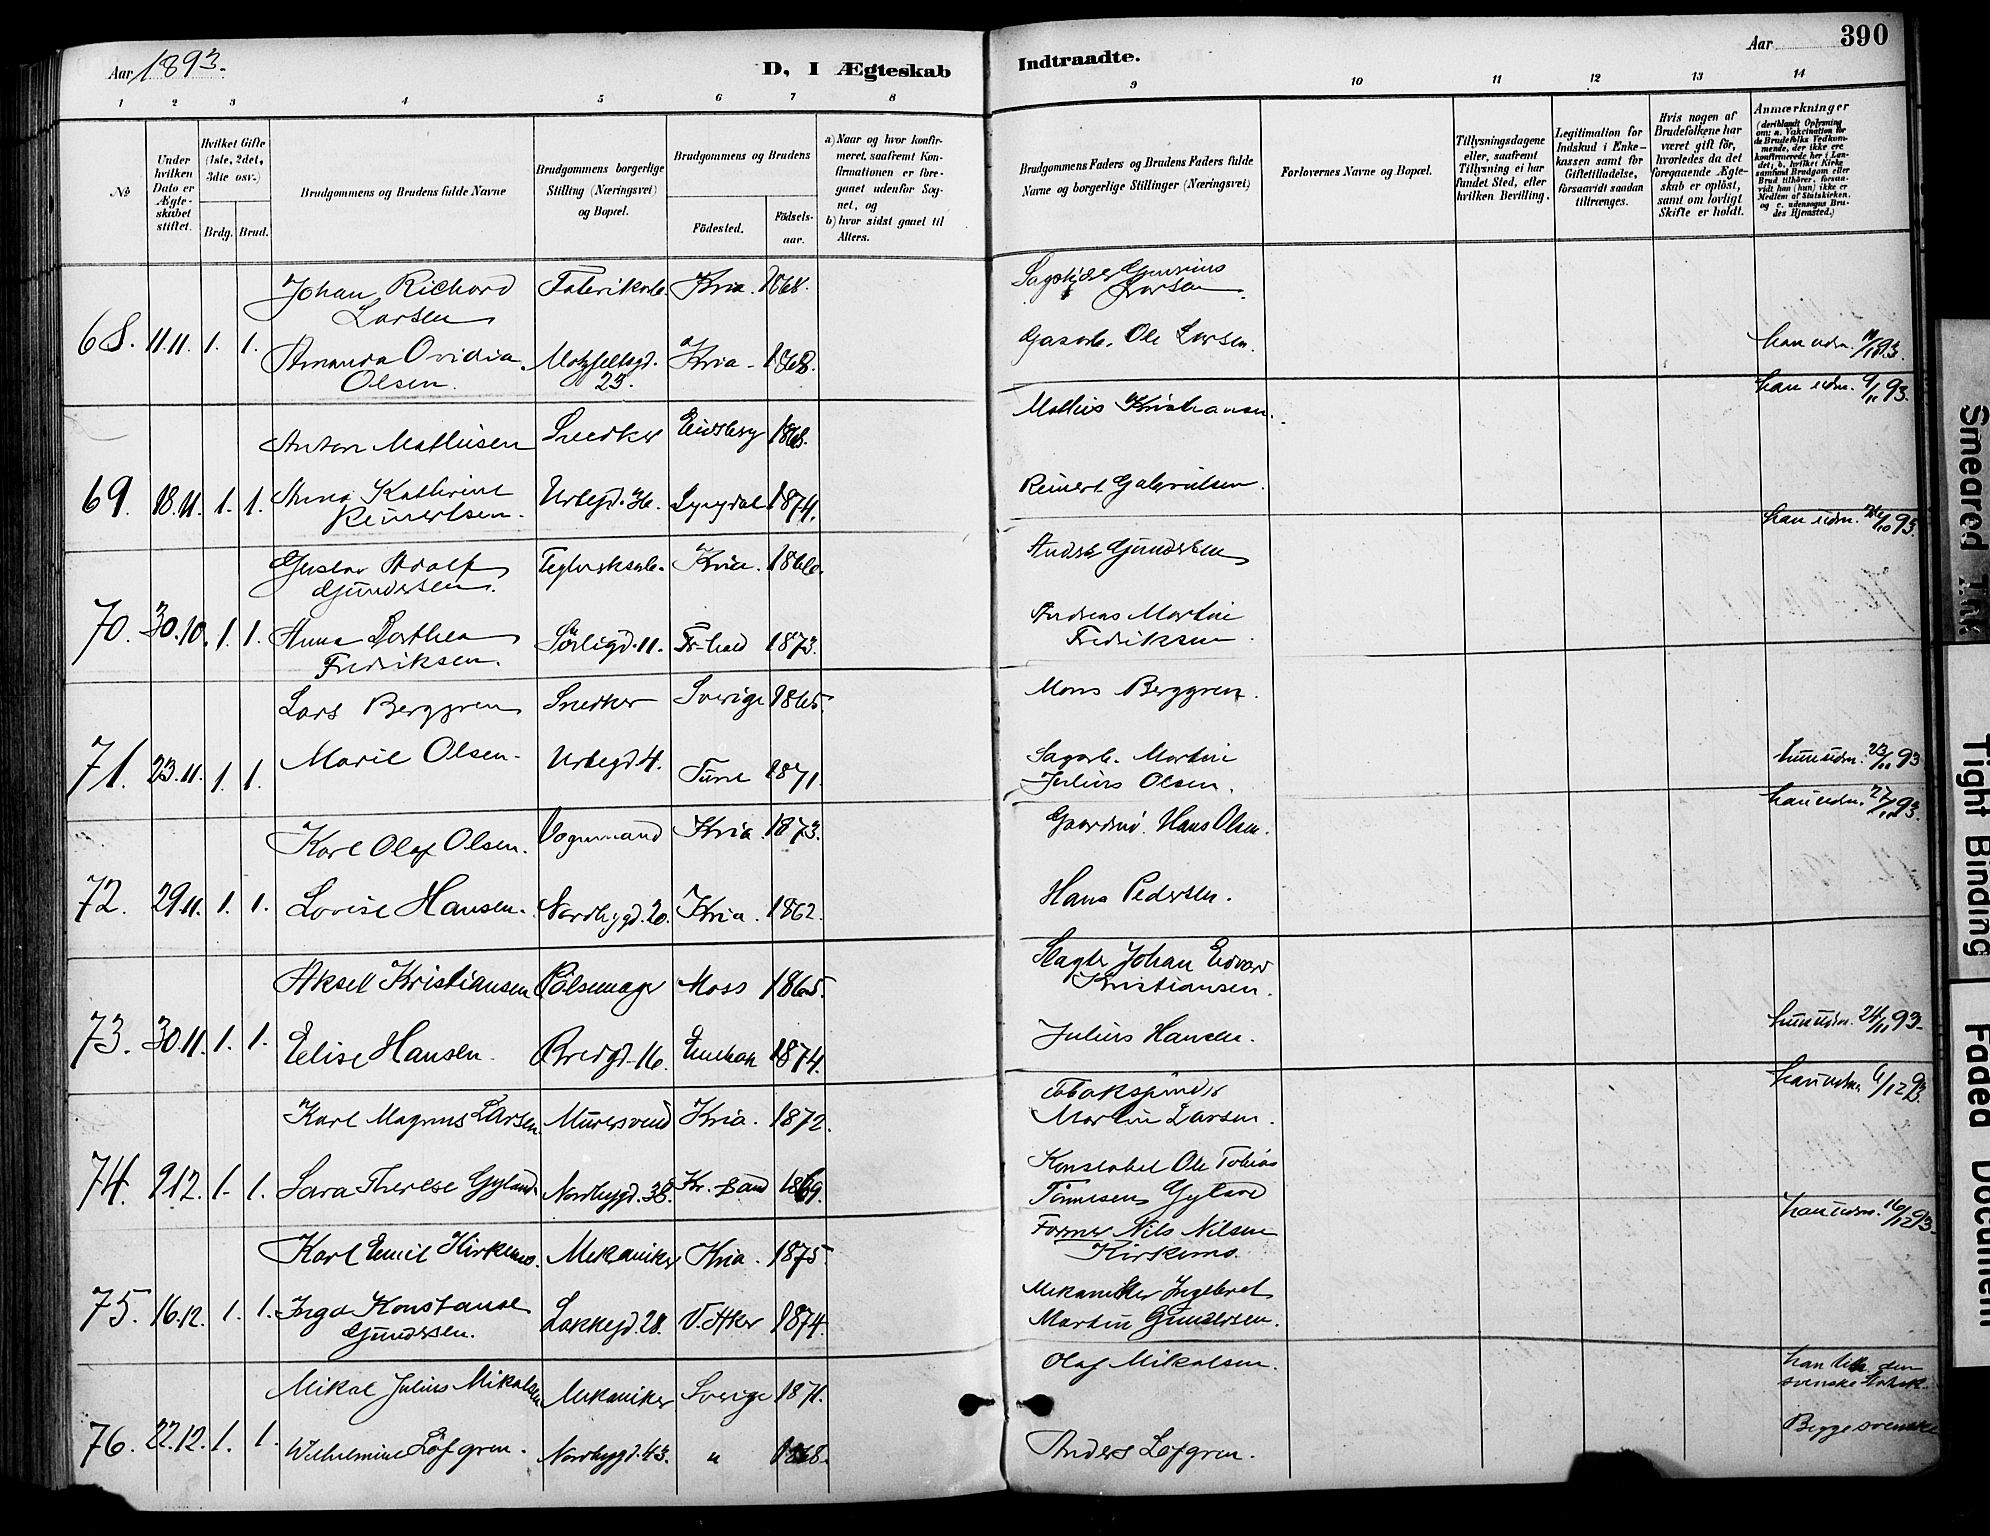 Aar 1893.
D, I Ægteskab
Indtraadte.
Aar
390
1 2 3 4 5 6 7 8
9 10 11 12 13 14
No
Under hvilken Dato er Ægteskabet stiftet.
Hvilket Gifte (1ste, 2det, 3die osv.)
Brdg. Brud.
Brudgommens og Brudens fulde Navne
Brudgommens borgerlige Stilling (Næringsvei) og Bopæl.
Brudgommens og Brudens
Födested.
Födsels-aar.
a) Naar og hvor konfirmeret, saafremt Konfirmationen er foregaaet udenfor Sognet, og
b) hvor sidst gaaet til Alters.
Brudgommens Faders og Brudens Faders fulde Navne og borgerlige Stillinger (Næringsvei)
Forlovernes Navne og Bopæl.
Tillysningsdagene eller, saafremt Tillysning ei har fundet Sted, efter hvilken Bevilling.
Legitimation for Indskud i Enkekassen samt for Giftetilladelse, forsaavidt saadan tiltrænges.
Hvis nogen af Brudefolkene har været gift för, hvorledes da det foregaaende Ægteskab er oplöst, samt om lovligt Skifte er holdt.
Anmærkninger
(deriblandt Oplysning om: a. Vakcination for de Brudefolks Vedkommende, der ikke ere konfirmerede her i Landet, b. hvilket Kirkesamfund Brudgom eller Brud tilhörer, forsaavidt han (hun) ikke er Medlem af Statskirken, og c. udensogns Brudes Hjemsted.)
Johan Richard Fabrikarb. Kria. 1868.
Larsen
Larsen
68. 11.11. 1. 1. Amanda Ovidia Kria 1868. Gasarb. Ole Larsen. han udm.
Olsen. 23.
Anton Mathisen Snedker Eidsberg 1868. Mathis Kristiansen. han udm. 9/11 93.
69. 18.11. 1. 1. Anna Kathrine Urtegd. 36. Lyngdal 1874. Reinert Gabrielsen.
Reinertsen.
Gustav Adolf Teglverksarb. Kria. 1866. Gundersen han udm.
Gundersen.
70. 30.10. 1. 1. Anna Dorthea Sörligd. 11. Fr-hald 1873. Andreas Martin
Fredriksen. Fredriksen
Lars Berggren Snedker Sverige 1865. Mons Berggren.
71. 23.11. 1. 1. Marie Olsen. Urtegd 4. Tune 1871. Sagarb. Martin
Julius Olsen. hun udm. 23/11 93
Karl Olaf Olsen. Vognmand Kria 1873. Hans Olsen. han udm.
72. 29.11. 1. 1. Lovise Hansen. Nordbygd. 20. Kria. 1862. Hans Pedersen.
Aksel Kristiansen Pölsemager Moss 1865. Slagter Johan Edvard
Kristiansen.
73. 30.11. 1. 1. Elise Hansen. Bredgd. 16. 1874. Julius Hansen. hun udm.
Karl Magnus Larsen. Murersvend Kria. 1872. Tobakspinder han udm. 6/12 93
Martin Larsen.
74. 9.12. 1. 1. Sara Therese Gyland. Nordbygd. 38. Kr. sand 1869. Konstabel Ole Tobias
Tönnesen Gyland
Karl Emil Kirkemo. Mekaniker Kria. 1875 Former Nils Nilsen han udm. 16/12 93
Kirkemo.
75. 16.12. 1. 1. Inga Konstanse Lakkegd. 28. V. Aker 1874. Mekaniker Ingebret
Gundersen. Martin Gundersen.
Mikal Julius Mikalsen Mekaniker Sverige 1871. Olaf Mikalsen. han den
svenske
76. 22.12. 1. 1. Wilhelmine Löfgren. Nordbygd. 43. " 1868. Anders Löfgren. Begge svenske
Smeared Ink
Tight Binding
Faded Document